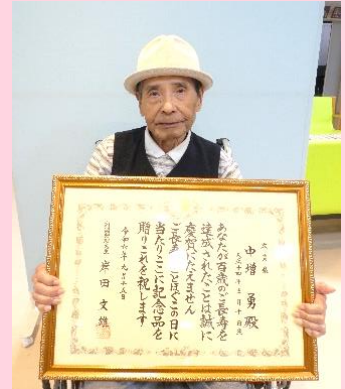 中増 勇殿
あなたが百歳のご長寿を
達成されたことは誠に
慶賀にたえません
ご長寿をことほぐこの日に
当たりここに記念品を
贈りこれを祝します
令和六年九月十五日
内閣総理大臣 岸田文雄